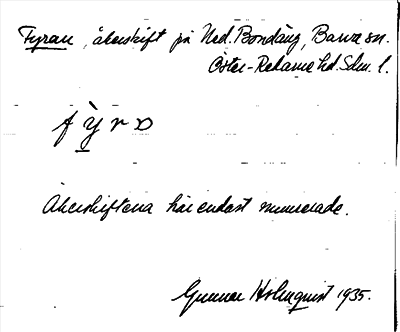 Fyran, åkerskift på Ned. Bondäng, Barva sn.
Öster-Rekarne hd. Sdm. l.
fỳ̠rɔ
Åkerskiftena här endast numrerade.
Gunnar Holmquist 1935.